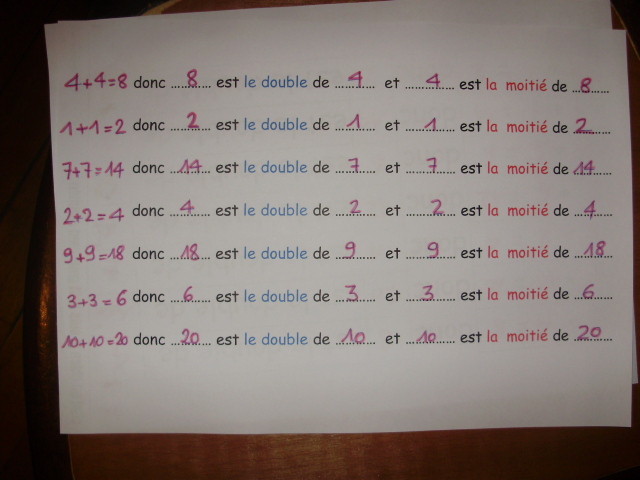 4+4=8 donc ...8... est le double de ...4... et ...4... est la moitié de ...8...
1+1=2 donc ...2... est le double de ...1... et ...1... est la moitié de ...2...
7+7=14 donc ...14... est le double de ...7... et ...7... est la moitié de ...14...
2+2=4 donc ...4... est le double de ...2... et ...2... est la moitié de ...4...
9+9=18 donc ...18... est le double de ...9... et ...9... est la moitié de ...18...
3+3=6 donc ...6... est le double de ...3... et ...3... est la moitié de ...6...
10+10=20 donc ...20... est le double de ...10... et ...10... est la moitié de ...20...